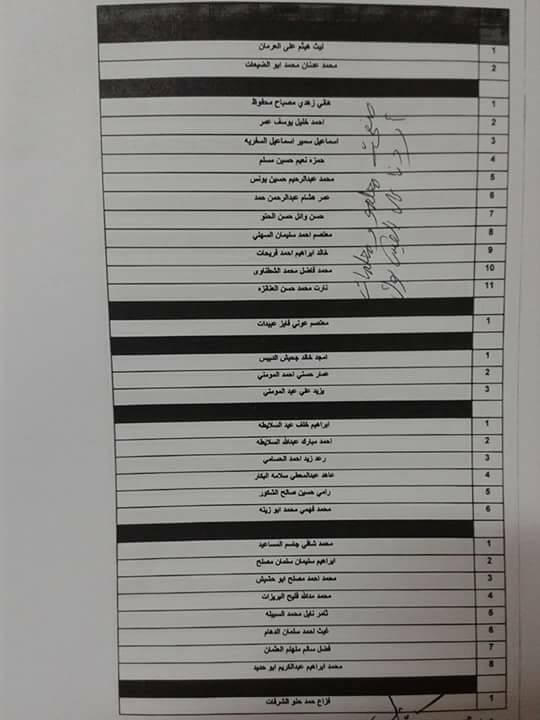 ليث هيثم علي العرمان 1
محمد عدنان محمد ابو الضبعات 2
هاني زهدي مصباح محفوظ 1
احمد خليل يوسف عمر 2
اسماعيل سمير اسماعيل السفريه 3
حمزه نعيم حسين مسلم 4
محمد عبدالرحيم حسين يونس 5
عمر هشام عبدالرحمن حمد 6
حسن وائل حسن الحلو 7
معتصم احمد سليمان السهلي 8
خالد ابراهيم احمد فريحات 9
محمد فاضل محمد الشطناوي 10
نارت محمد حسن العناتزه 11
معتصم عوني فايز عبيدات 1
امجد خالد جحيش الدبيس 1
عمار حسني احمد المومني 2
يزيد علي عبد المومني 3
ابراهيم خلف عيد السلايطه 1
احمد مبارك عبدالله السلايطه 2
رعد زيد احمد الحسامي 3
عاهد عبدالمعطي سلامه البكار 4
رامي حسين صالح الشكور 5
محمد فهمي محمد ابو زينه 6
محمد شافي جاسم المساعيد 1
ابراهيم سليمان سلمان مصلح 2
محمد احمد مصلح ابو حشيش 3
محمد مدالله فليح البريزات 4
ثامر نايل محمد السبيله 5
غيث احمد سلمان الدهام 6
فضل سالم ملهلم العثمان 7
محمد ابراهيم عبدالكريم ابو حديد 8
فزاع حمد حلو الشرفات 1